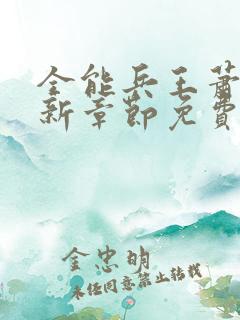 全能兵王萧
新章节免费
金忠明
未经同意禁止转载